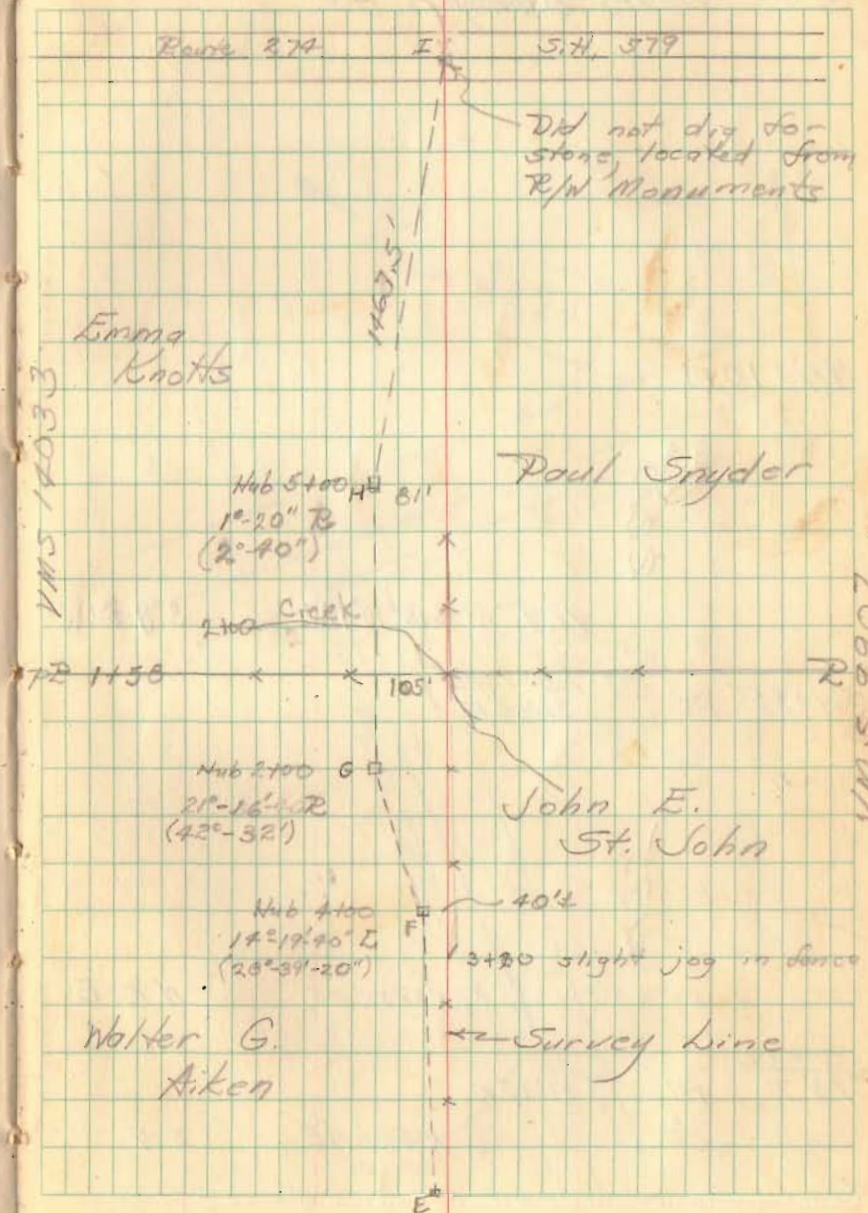 Route 274 I S.H. 579
Did not dig for
stone, located from
R/W Monuments
1467.5'
Emma
Knotts
VMS 14033
Paul Snyder
Hub 5+00 H 81'
1°-20" R
(2°-40")
Creek
2+00
1+58 105'
Hub 2+00 G
21°-16' R
(42°-32')
John E.
St. John
VMS 9907
Hub 4+00 40'±
F
14°-19'-40" L
(28°-39'-20")
slight jog in fence
Walter G.
Aiken
Survey Line
E